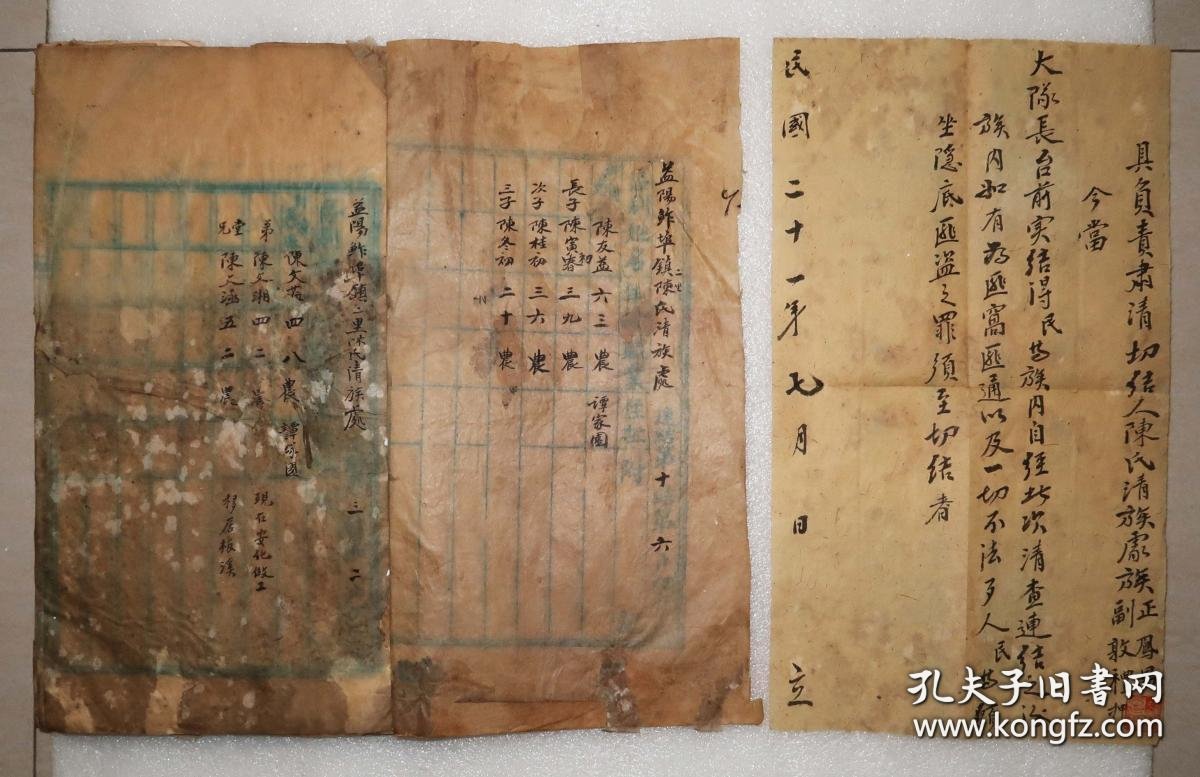 具負責肅清切結人陳氏清族處族正
副
鳳
敦
押
今當
大隊長台前实結得民等族内自经此次清查連结之
族内如有為匪窩匪通以及一切不法歹人民等願
坐隐底匪盗之罪須至切结者
民國二十一年七月日立
益陽鮓埠鎮二里陳氏清族處
十
六
陳友益六三農
譚家園
長子陳寅初三九農
次子陳桂初三六農
三子陳冬初二十農
益陽鮓埠鎮二里陳氏清族處
三
二
陳文
四八農
譚家園
弟陳文湘四二
現在安化做工
堂兄陳文
五二農
移居板溪
孔夫子旧书网
www.kongfz.com